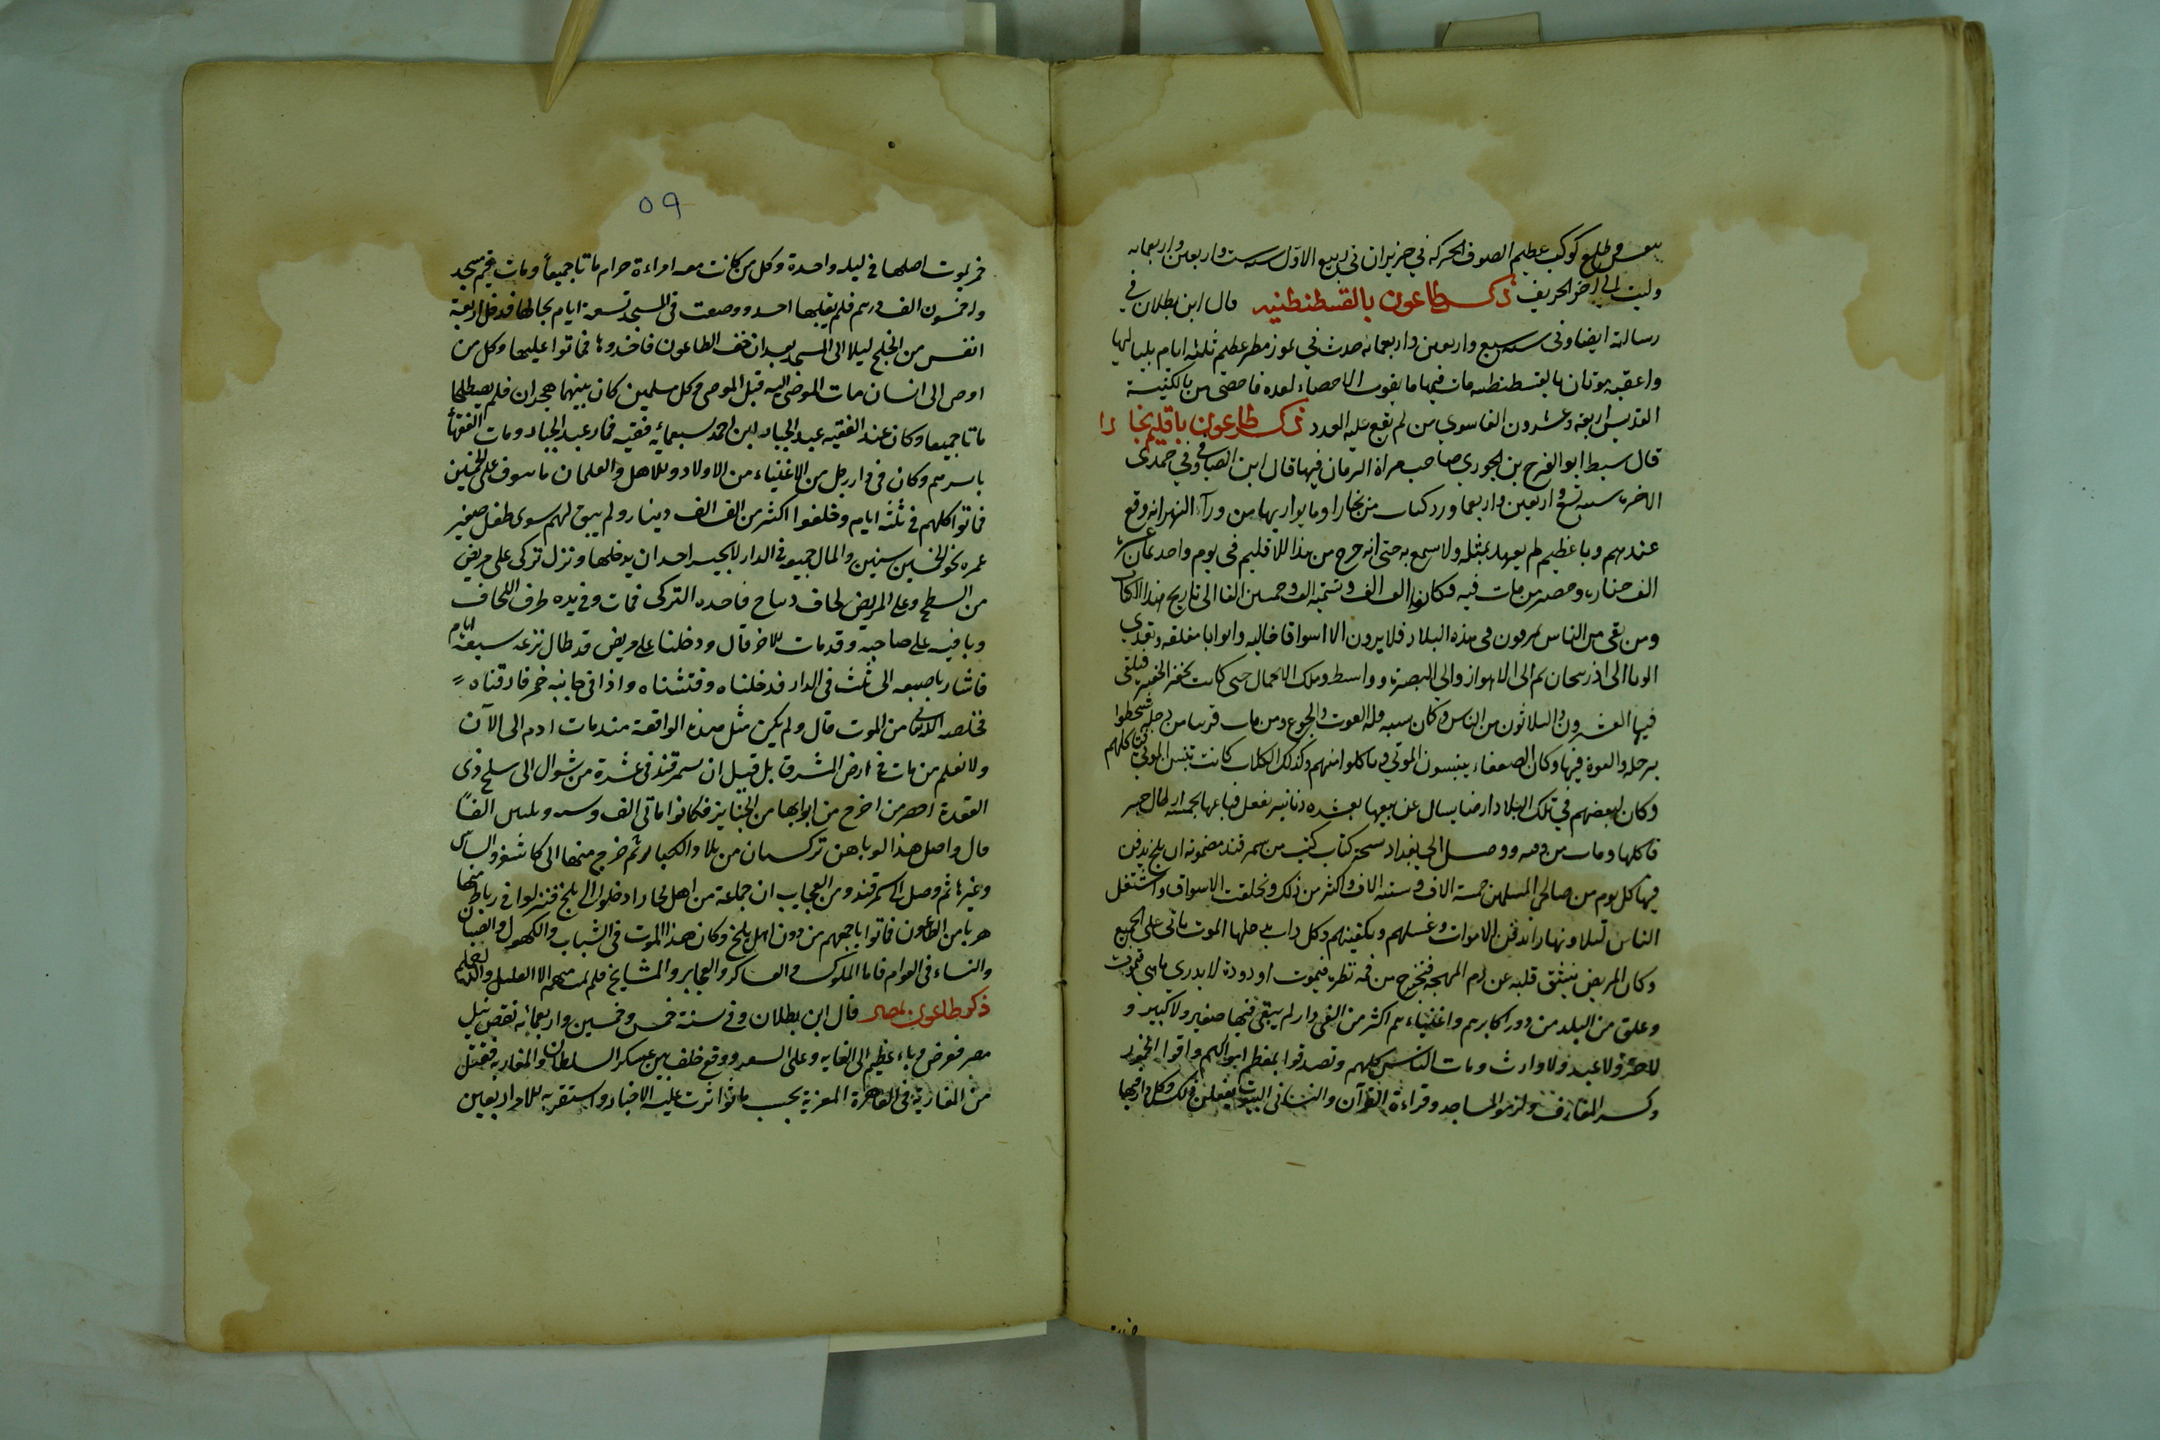 وطلع كوكب عظيم الضوء الحركه في حزيران في ربيع الاول سنه ست واربعين واربعمايه
ولبث الى اخر الخريف ذكر طاعون بالقسطنطنيه قال ابن بطلان في
رسالته ايضا وفى سنه سبع واربعين واربعمائه حدث في تموز مطر عظيم ثلثه ايام بلياليها
واعقبه موتان بالقسطنطنيه مات فيها ما يفوت الاحصاء لعده فاحصى من بالكنيسة
اربعة وعشرون الفا سوى من لم يقع عليه العدد ذكر طاعون باقليم بخارا
قال سبط ابو الفرج بن الجوزي صاحب مراة الزمان فيها قال ابن الصابي وفي جمدى
الاخره سنه تسع واربعين واربعما ورد كتاب من بخارا وما يواريها من ورآ النهر انه وقع
عندهم وبا عظيم لم يعهد بمثله ولا سمع به حتى انه خرج من هذا الاقليم في يوم واحد ثمان عشره
الف جنازه وحصر من مات فيه فكانوا الف الف وستمية الف وخمسين الفا الى تاريخ هذا الكتاب
ومن بقى من الناس يمرون فى هذه البلاد فلا يرون الا اسواقا خاليه وابوابا مغلقه وتعدى
الوبا الى اذربيجان ثم الى الاهواز والى البصره وواسط وتلك الاعمال حتى كانت تحفر الحفيره فيلقى
فيها العشرون والثلاثون من الناس وكان سببه قلة القوت والجوع ومن مات قريبا من دجله شحطوا
برجله والقوه فيها وكان الضعفاء ينبشون الموتى وياكلوا منهم وكذلك الكلاب كانت تنبش الموتى فتاكلهم
وكان لبعضهم في تلك البلاد ارضا يسال عن بيعها بعشره دنانير فلم يفعل فباعها بخمسه ارطال خبز
فاكلها ومات من وقته ووصل الى بغداد نسخه كتاب كتب من سمرقند مضمونه ان بلخ يدفن
فيها كل يوم من صالحى المسلمين خمسة الاف وستة الاف واكثر من ذلك وتخلقت الاسواق واشتغل
الناس ليلا ونهارا بدفن الاموات وغسلهم وتكفينهم وكل دار يدخلها الموت ياتى على الجميع
وكان المريض ينشق قلبه عن دم المهجه فتخرج من فمه قطره فيموت او دودة لا يدرى ما هي فيموت
وغلق من البلد من دور اكابرهم واغنياءهم اكثر من الفي دار لم يبقى فيها صغير ولا كبير و
لا حر ولا عبد ولا وارث ومات الناس كلهم وتصدقوا بمعظم اموالهم واراقوا الخمور
وكسر المعازف ولزمو المساجد وقراءة القرآن والنسا في البيوت يفعلن ذلك وكل دار فيها
٥٩
خمر يموت اهلها في ليلة واحدة وكل من كانت معه امراءة حرام ماتا جميعا ومات قيم مسجد
وله خمسون الف درهم فلم يقبلها احد ووضعت فى المسجد تسعة ايام بحالها فدخل اربعة
انفس من الخلج ليلا الى المسجد بعد ان خف الطاعون فاخذوها فماتوا عليها وكل من
اوصى الى انسان مات الموصى اليه قبل الموصى وكل مسلمين كان بينهما هجران فلم يصطلحا
ماتا جميعا وكان عند الفقيه عبد الجبار ابن احمد سبعمائه فقيه فمات عبد الجبار ومات الفقهآ
باسرهم وكان فى دار رجل من الاغنياء من الاولاد والاهل والغلمان ما ينوف على الخمسين
فماتوا كلهم فى ثلثة ايام وخلفوا اكثر من الف الف دينار ولم يبق لهم سوى طفل صغير
عمره نحو الخمس سنين والمال جميعه فى الدار لا يجسر احد ان يدخلها ونزل تركى على مريض
من السطح وعلى المريض لحاف ديباج فاخده التركى فمات وفى يده طرف اللحاف
وباقيه على صاحبه وقد مات الاخر قال ودخلنا على مريض قد طال نزعه سبعة ايام
فاشار باصبعه الى بيت فى الدار فدخلناه وفتشناه واذا فى جانبه خمر فارقناه
فخلصه الله من الموت قال ولم يكن مثل هذه الواقعة منذ مات ادم الى الآن
ولا نعلم من مات فى ارض المشرق بل قيل ان سمرقند فى عشرة من شوال الى سلخ ذى
القعدة احصر من اخرج من ابوابها من الجنايز فكانوا مائتى الف وسته وثلاثين الفا
قال واصل هذا الوبا من تركستان من بلاد الكفار ثم خرج منها الى كاشغر والشاش
وغيرها ثم وصل الى سمرقند ومن العجايب ان جماعة من اهل بخارا دخلوا الى بلخ فنزلوا فى رباط منها
هربا من الطاعون فماتوا باجمعهم من دون اهل بلخ وكان هذا الموت فى الشباب والكهول والصبيان
والنساء فى العوام فاما الملوك والعساكر والعجايز والمشايخ فلم يمت منهم الا القليل والله اعلم
ذكر طاعون بمصر قال ابن بطلان وفى سنة خمس وخمسين واربعمائه نقص نيل
مصر فعرض وباء عظيم الى الغايه وعلى السعر ووقع خلف بين عسكر السلطان والمغاربه فقتل
من المغاربة فى القاهرة المعزية بحسب ما تواترت عليه الاخبار واستقر به الامر اربعين